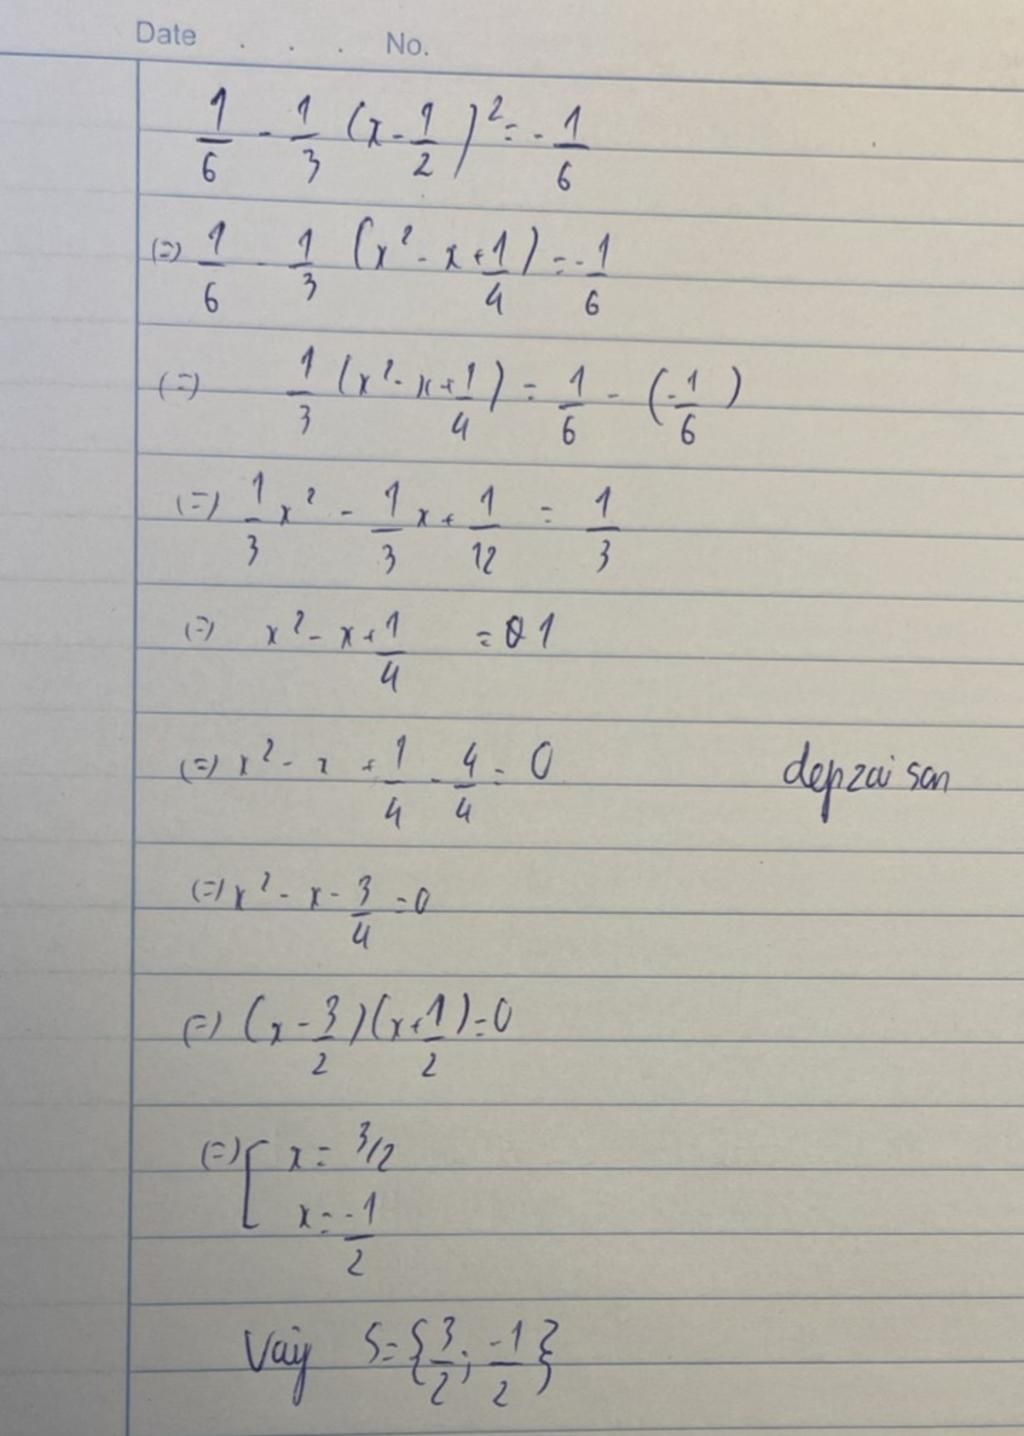 Date . . . No.
1/6 - 1/3 (x - 1/2)² = -1/6
(=) 1/6 - 1/3 (x² - x + 1/4) = -1/6
(=) 1/3 (x² - x + 1/4) = 1/6 - (-1/6)
(=) 1/3 x² - 1/3 x + 1/12 = 1/3
(=) x² - x + 1/4 = 1
(=) x² - x + 1/4 - 4/4 = 0 depzai san
(=) x² - x - 3/4 = 0
(=) (x - 3/2)(x + 1/2) = 0
(=) [ x = 3/2
x = -1/2
Vậy S = {3/2; -1/2}